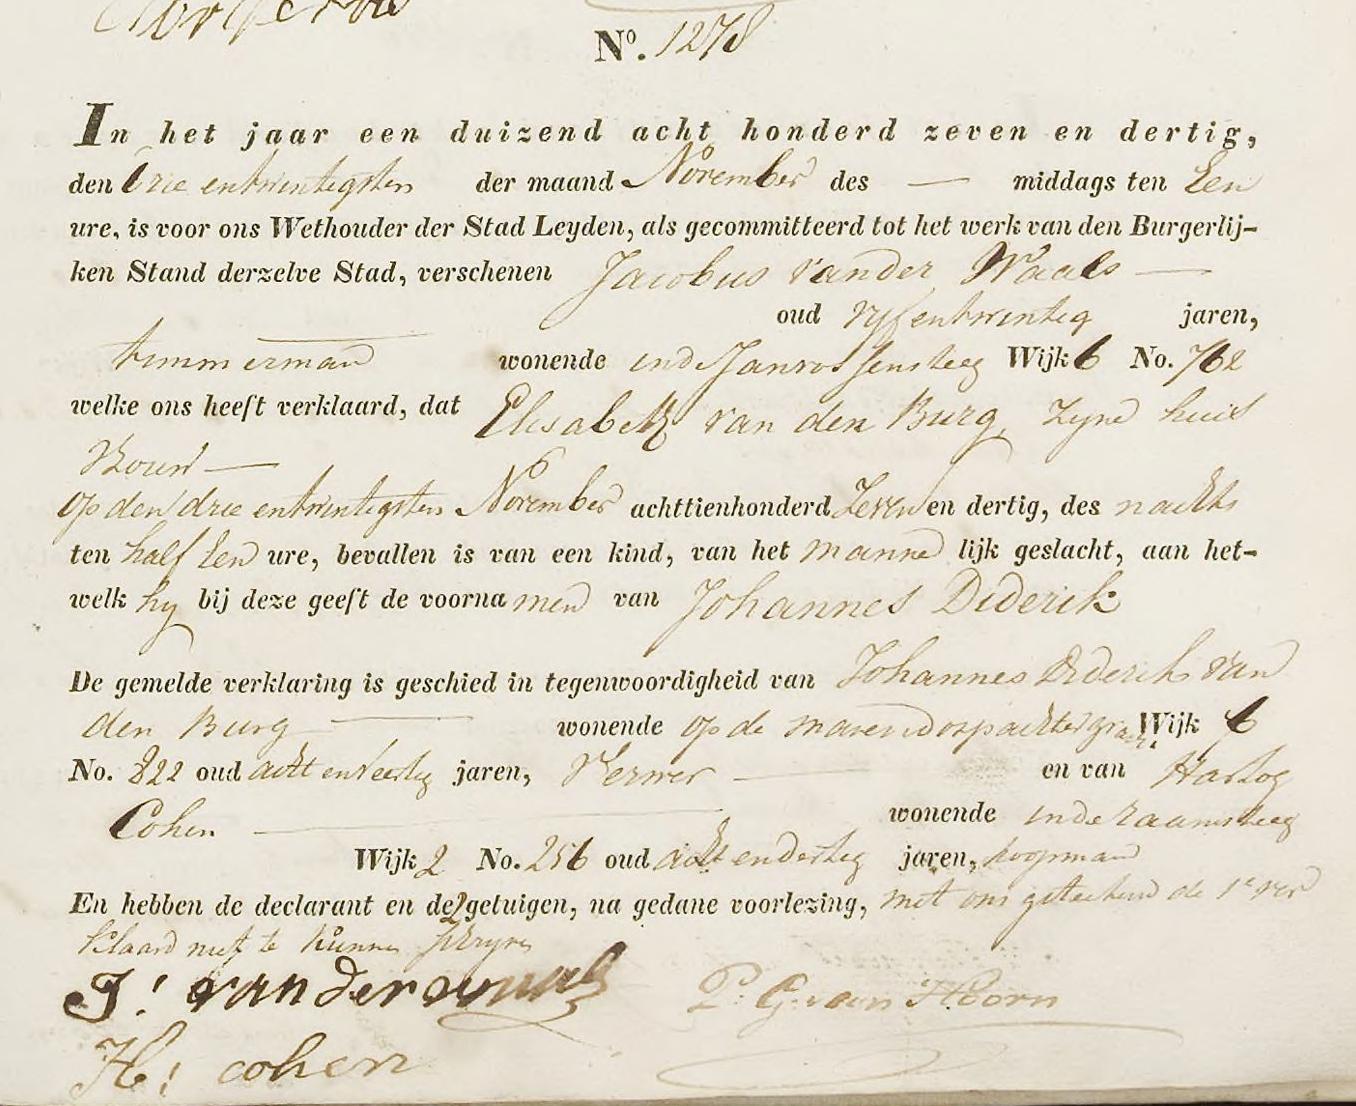 No. 1278
In het jaar een duizend acht honderd zeven en dertig,
den drie entwintigsten der maand November des — middags ten Een
ure, is voor ons Wethouder der Stad Leyden, als gecommitteerd tot het werk van den Burgerlij-
ken Stand derzelve Stad, verschenen Jacobus van der Waals —
oud vyf entwintig jaren,
timmerman wonende in de Janvossensteeg Wijk 6 No. 762
welke ons heeft verklaard, dat Elisabeth van den Burg, Zyne huis
Vrouw —
op den drie entwintigsten November achttienhonderd Zeven en dertig, des nachts
ten half Een ure, bevallen is van een kind, van het manne lijk geslacht, aan het-
welk hy bij deze geeft de voorna men van Johannes Diderik
De gemelde verklaring is geschied in tegenwoordigheid van Johannes Diderik van
den Burg — wonende op de marendorpachtergracht Wijk 6
No. 822 oud acht enveertig jaren, Verwer — en van Hartog
Cohen — wonende in de raamsteeg
Wijk 2 No. 256 oud acht endertig jaren, koopman
En hebben de declarant en de 2e getuigen, na gedane voorlezing, met ons getekend de 1e ver
klaard niet te kunnen schryven
J: van der waals P. G. van Hoorn
H: cohen